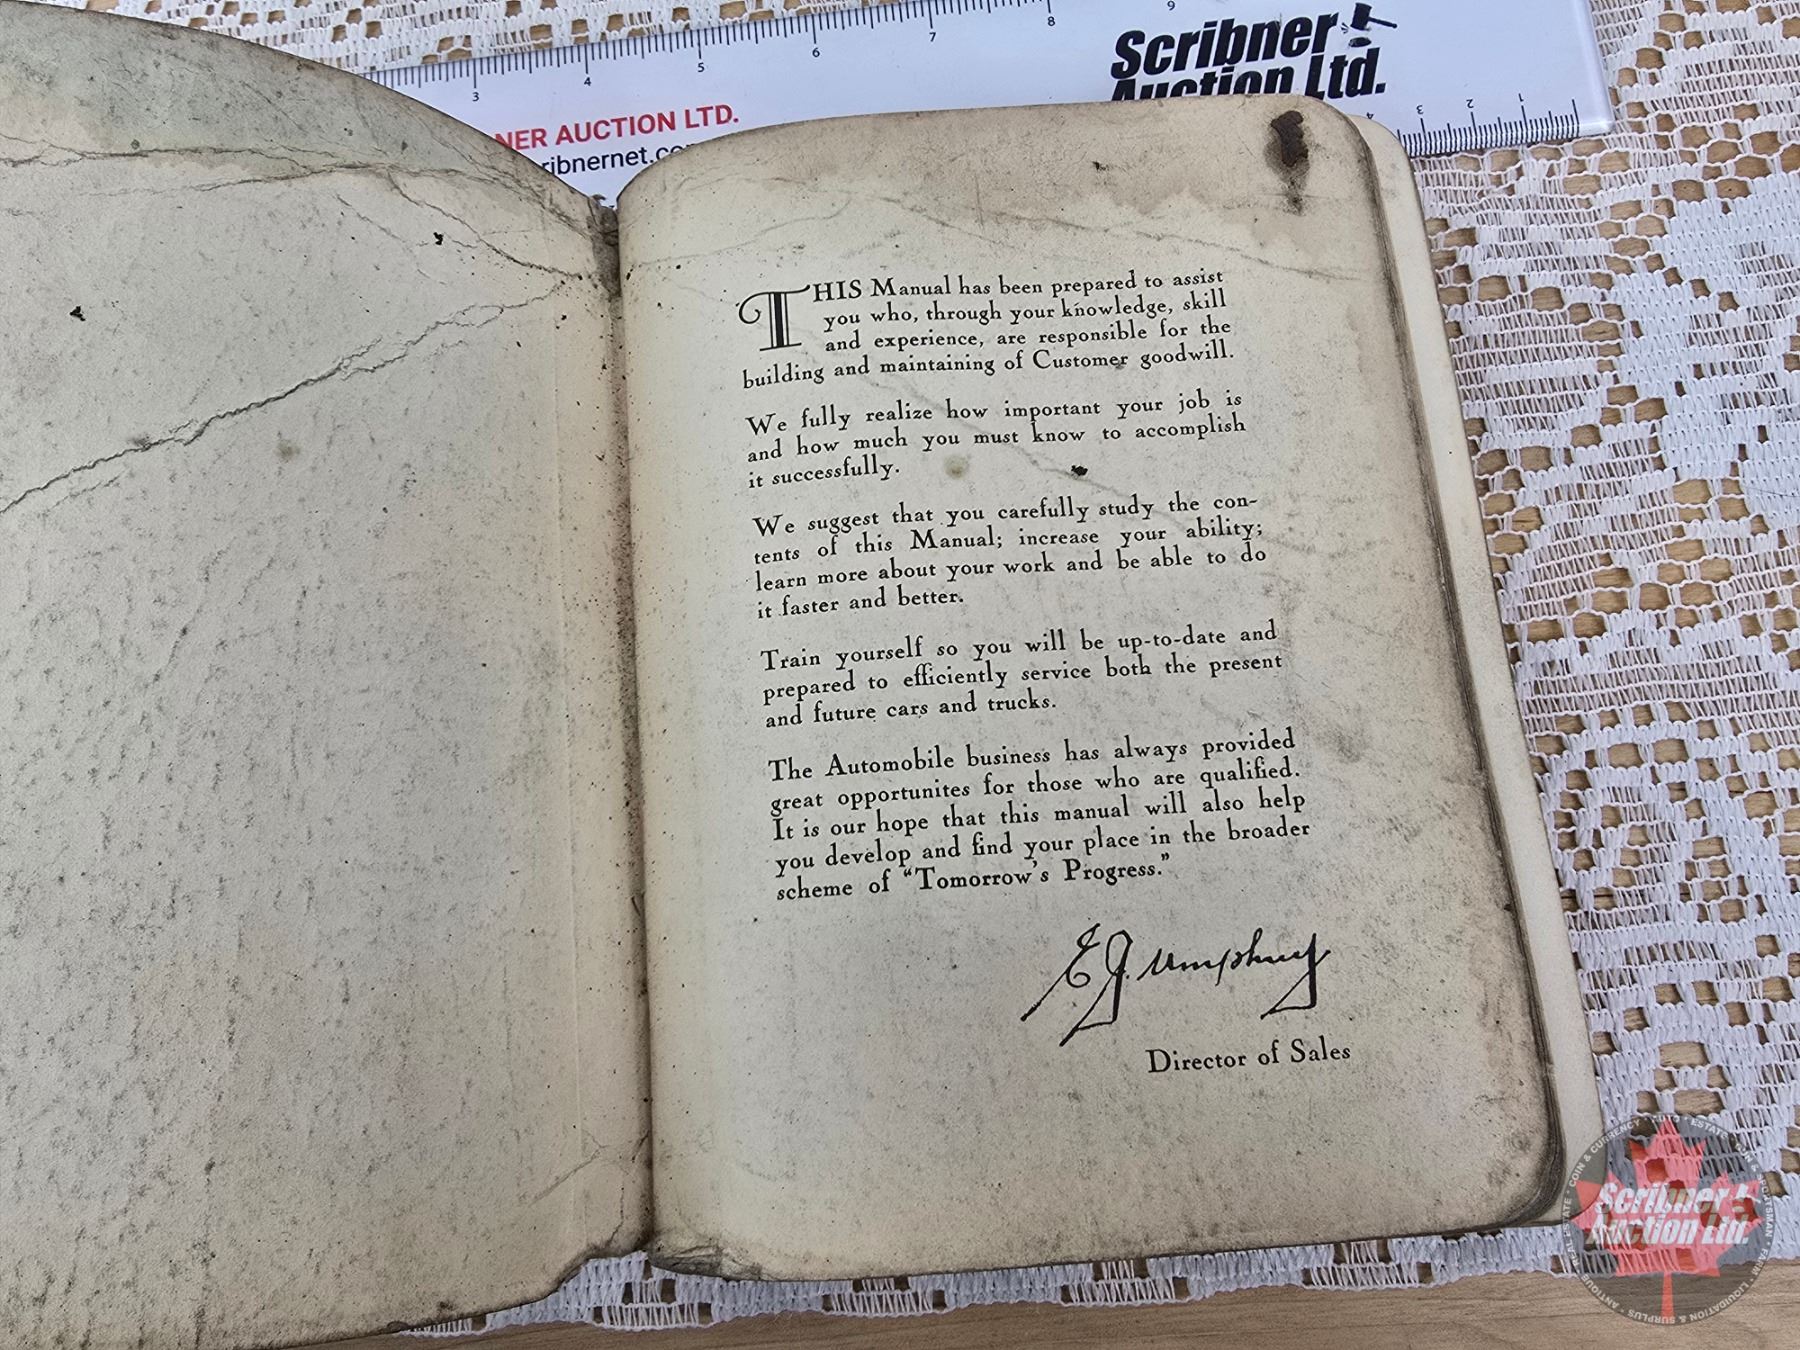 3 4 5 6 7 8 9
Scribner
Auction Ltd.
NER AUCTION LTD.
ribnernet.co
4 3 2 1
THIS Manual has been prepared to assist
you who, through your knowledge, skill
and experience, are responsible for the
building and maintaining of Customer goodwill.
We fully realize how important your job is
and how much you must know to accomplish
it successfully.
We suggest that you carefully study the con-
tents of this Manual; increase your ability;
learn more about your work and be able to do
it faster and better.
Train yourself so you will be up-to-date and
prepared to efficiently service both the present
and future cars and trucks.
The Automobile business has always provided
great opportunites for those who are qualified.
It is our hope that this manual will also help
you develop and find your place in the broader
scheme of “Tomorrow's Progress.”
E J. Umphrey
Director of Sales
Scribner
Auction Ltd.
ANTIQUE • REAL ESTATE • COIN & CURRENCY • AUTO • ESTATE • GUN & SPORTSMAN • FARM • LIQUIDATION & SURPLUS